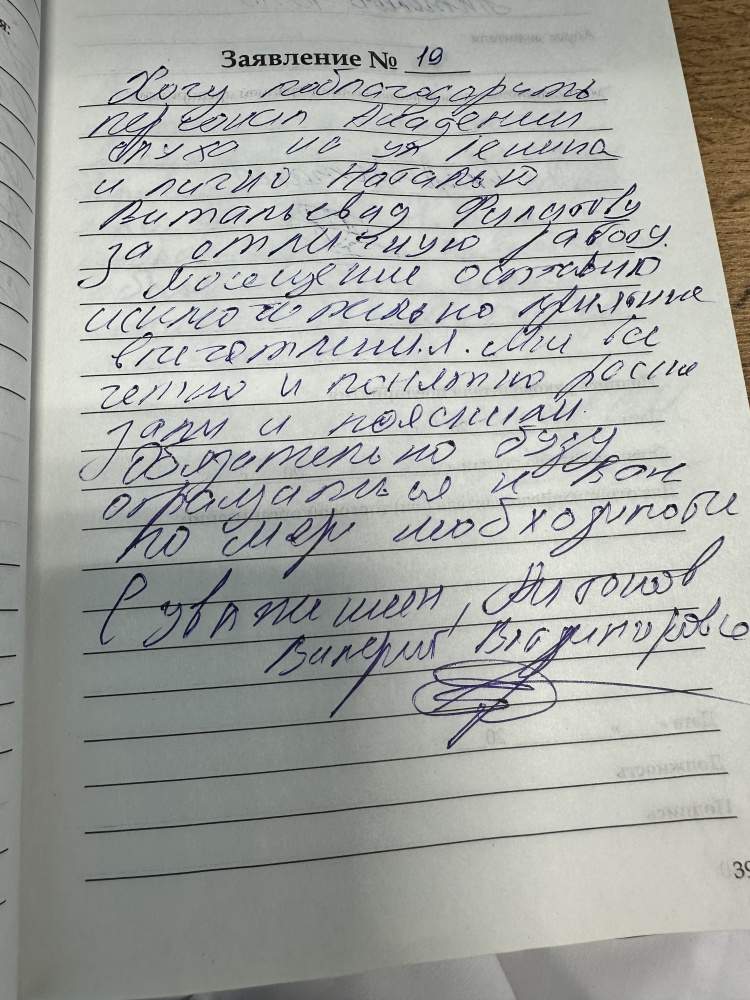 Заявление № 19
Хочу поблагодарить
персонал Академии
слуха на ул Ленина
и лично Наталью
Витальевну Филатову
за отличную работу.
Посещение оставило
исключительно приятные
впечатления. Мне все
четко и понятно расска
зали и пояснили.
Обязательно буду
обращаться к Вам
по мере необходимости
С уважением, Антонов
Валерий Владимирович
39